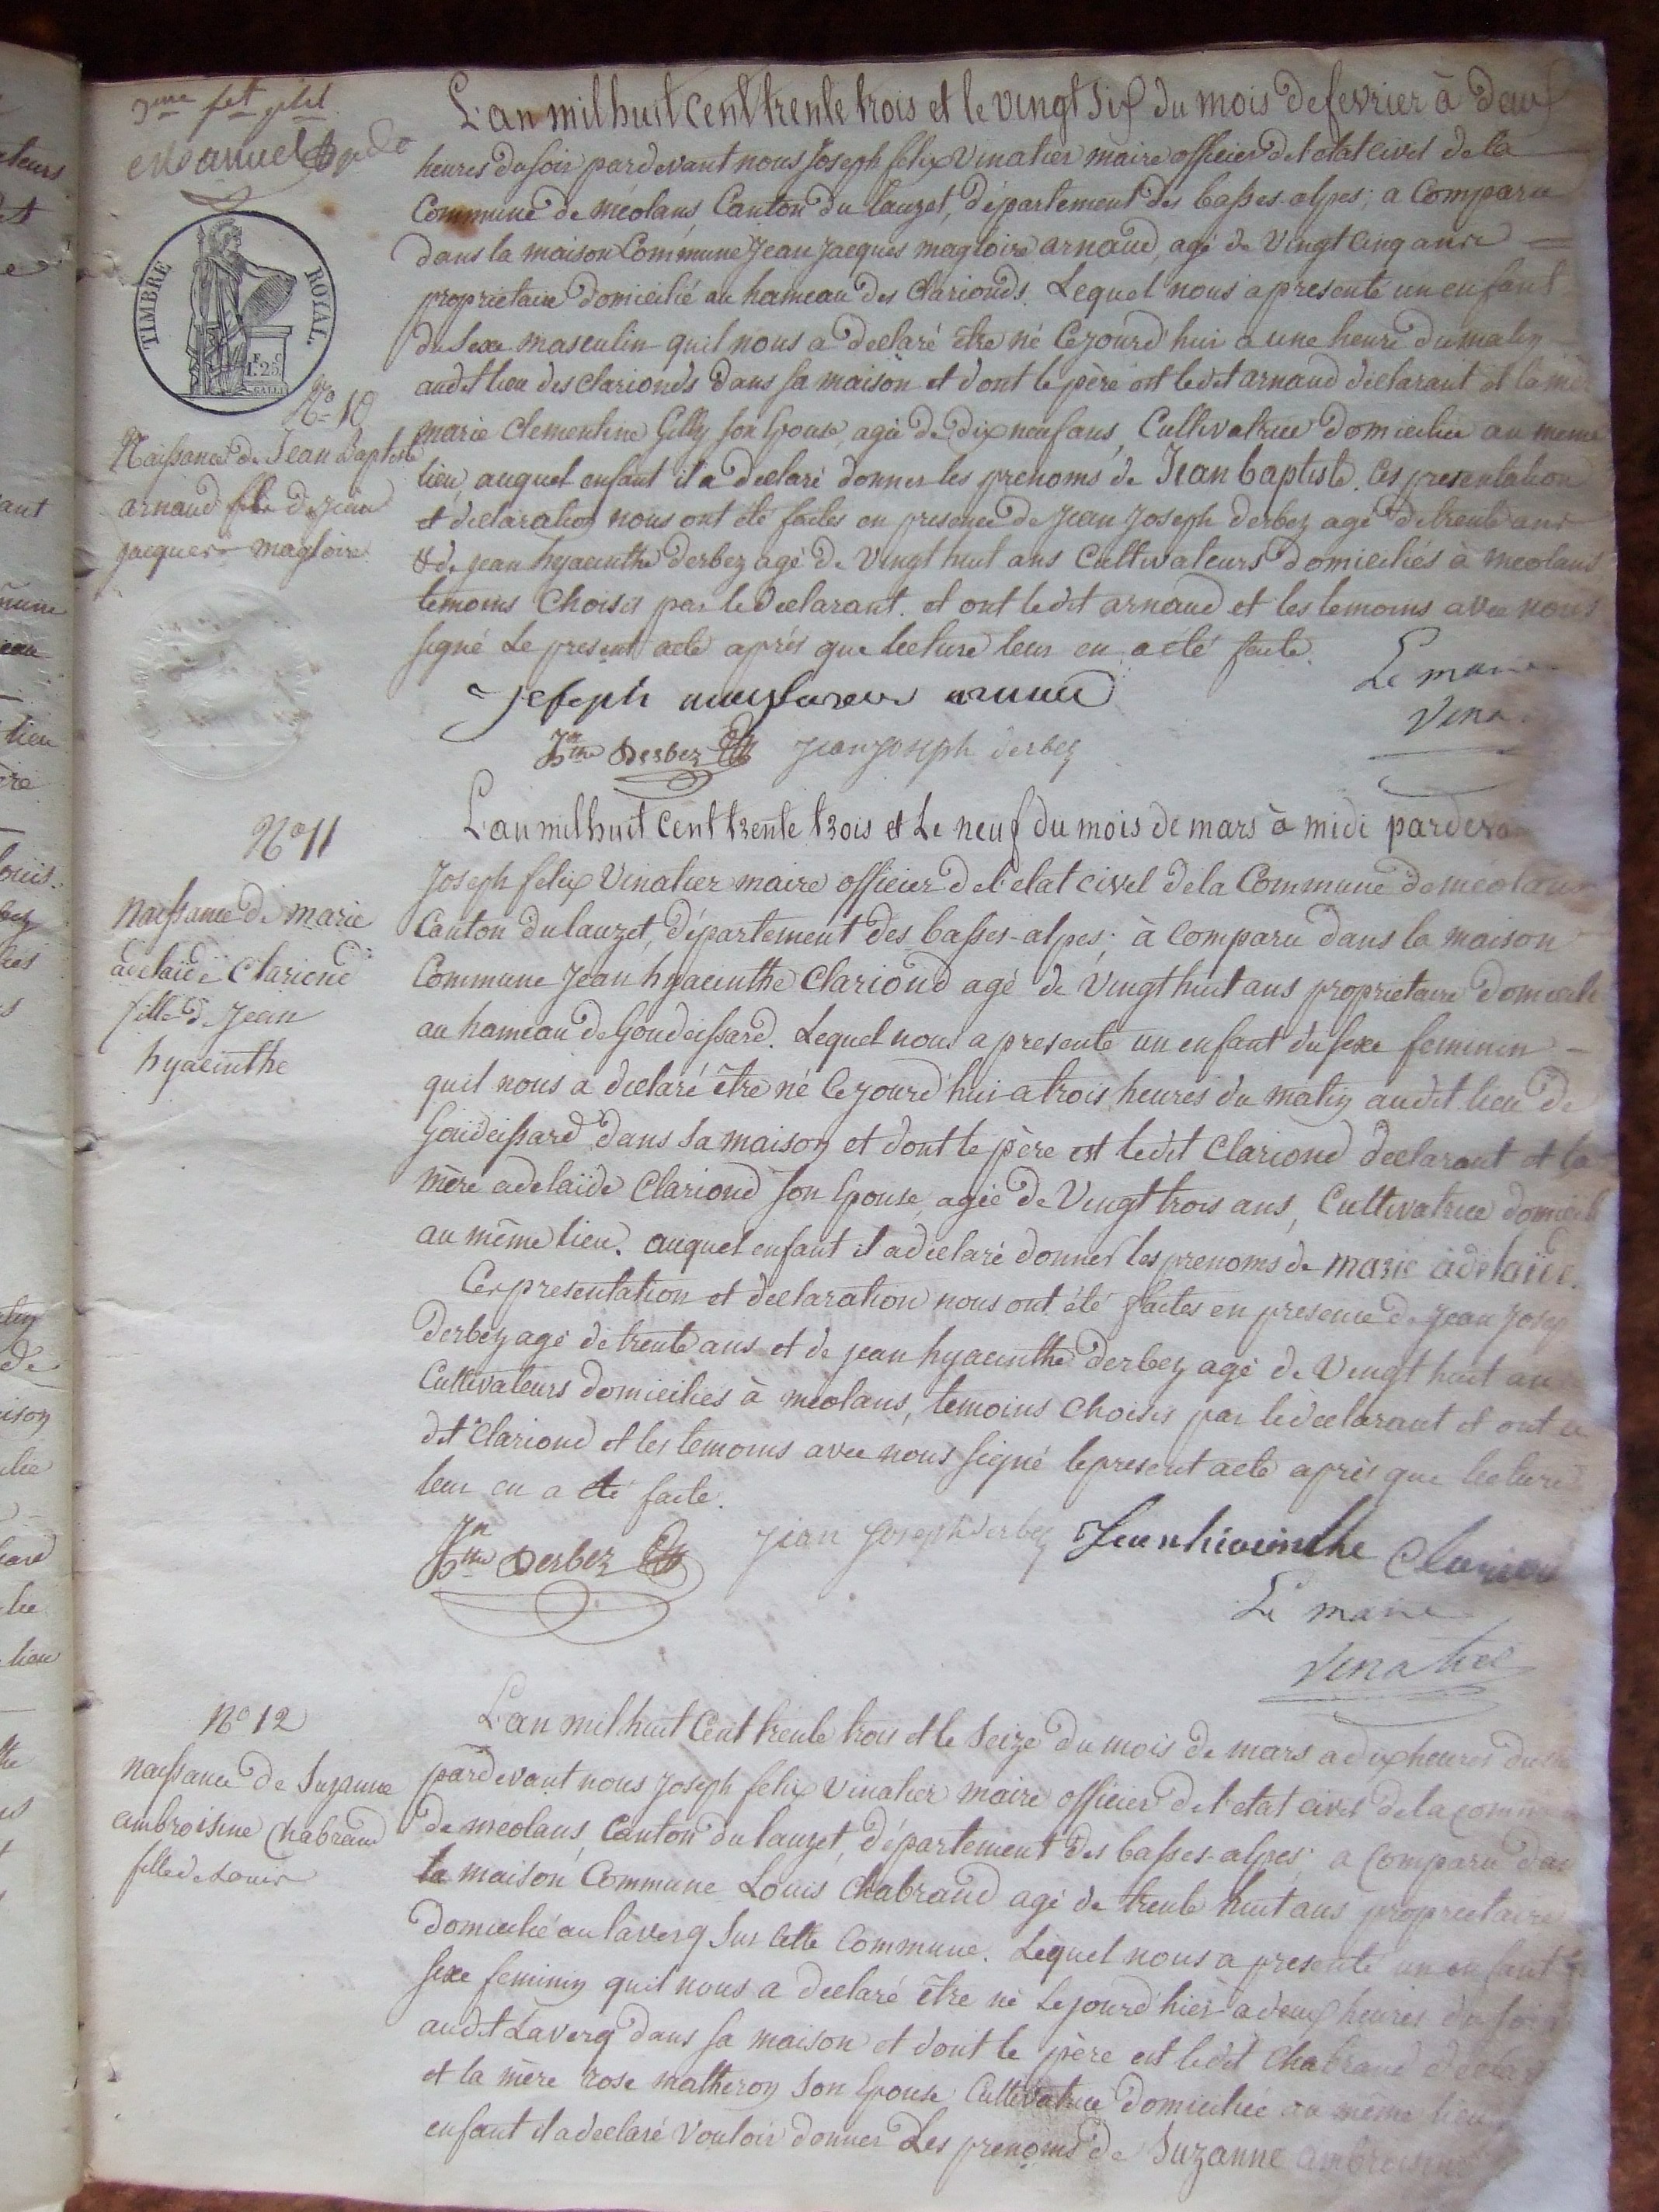 3me fet
Emanuel
TIMBRE ROYAL
F. 25 C
No 10
Naissance de Jean Baptiste
arnaud fils de Jean
jacques magloire
L'an mil huit cent trente trois et le vingt six du mois de fevrier à deux
heures du soir pardevant nous Joseph felix Vinatier maire officier de l'etat civil de la
Commune de méolans Canton du lauzet, département des basses-alpes; a Comparu
dans la maison Commune Jean Jacques magloire arnaud, agé de Vingt cinq ans
proprietaire domicilié au hameau des Clarionds. Lequel nous a presenté un enfant
du Sexe masculin quil nous a declaré être né Cejourd'hui a une heure du matin
audit lieu des clarionds dans sa maison et dont le père est ledit arnaud declarant et la mère
marie Clementine Gilly son Epouse, agée de dix neuf ans, Cultivatrice domiciliée au même
lieu, auquel enfant il a declaré donner les prenoms de Jean baptiste. Ces presentation
et declaration nous ont été faites en presence de Jean Joseph derbez agé de trente ans
& de jean hyacinthe derbez agé de Vingt huit ans Cultivateurs domiciliés à meolans
temoins Choisis par le declarant. et ont ledit arnaud et les temoins avec nous
signé Le present acte après que lecture leur en a eté faite.
Le maire
Jn hthe Derbez jean joseph derbez
No 11
Naissance de marie
adelaïde Clariond
fille de Jean
hyacinthe
L'an mil huit Cent trente trois et Le neuf du mois de mars à midi pardevant
Joseph felix Vinatier maire officier de l'etat civil de la Commune de méolans
Canton du lauzet, département des basses-alpes; à Comparu dans la maison
Commune Jean hyacinthe Clariond agé de Vingt huit ans proprietaire domicilié
au hameau de Goudeissard. Lequel nous a presenté un enfant du sexe feminin
quil nous a declaré être né Cejourd'hui a trois heures du matin audit lieu de
Goudeissard dans sa maison et dont le père est ledit Clariond declarant et la
mère adelaïde Clariond son Epouse, agée de Vingt trois ans, Cultivatrice domiciliée
au même lieu. auquel enfant il a declaré donner les prenoms de marie adelaïde.
Ces presentation et declaration nous ont été faites en presence de Jean Joseph
derbez agé de trente ans et de jean hyacinthe derbez agé de Vingt huit ans
Cultivateurs domiciliés à méolans, temoins Choisis par le declarant et ont le
dit Clariond et les temoins avec nous signé le present acte après que lecture
leur en a eté faite.
Jn hthe Derbez jean Joseph derbez Jean hiacinthe Clariond
Le maire
Vinatier
No 12
Naissance de Suzanne
ambroisine Chabrand
fille de Louis
L'an mil huit Cent trente trois et le Seize du mois de mars a dix heures du
pardevant nous Joseph felix Vinatier maire officier de l'etat civil de la commune
de meolans, Canton du lauzet, département des basses-alpes; a Comparu dans
la maison Commune Louis Chabrand agé de trente huit ans proprietaire
domicilié au laverq sur Cette Commune. Lequel nous a presenté un enfant du
sexe feminin quil nous a declaré être né Le jourd'hier a deux heures du soir
audit Laverq dans sa maison et dont le père est ledit Chabrand declarant
et la mère rose matheron Son Epouse, Cultivatrice domiciliée au même lieu
enfant il a declaré Vouloir donner Les prenoms de Suzanne ambroisine